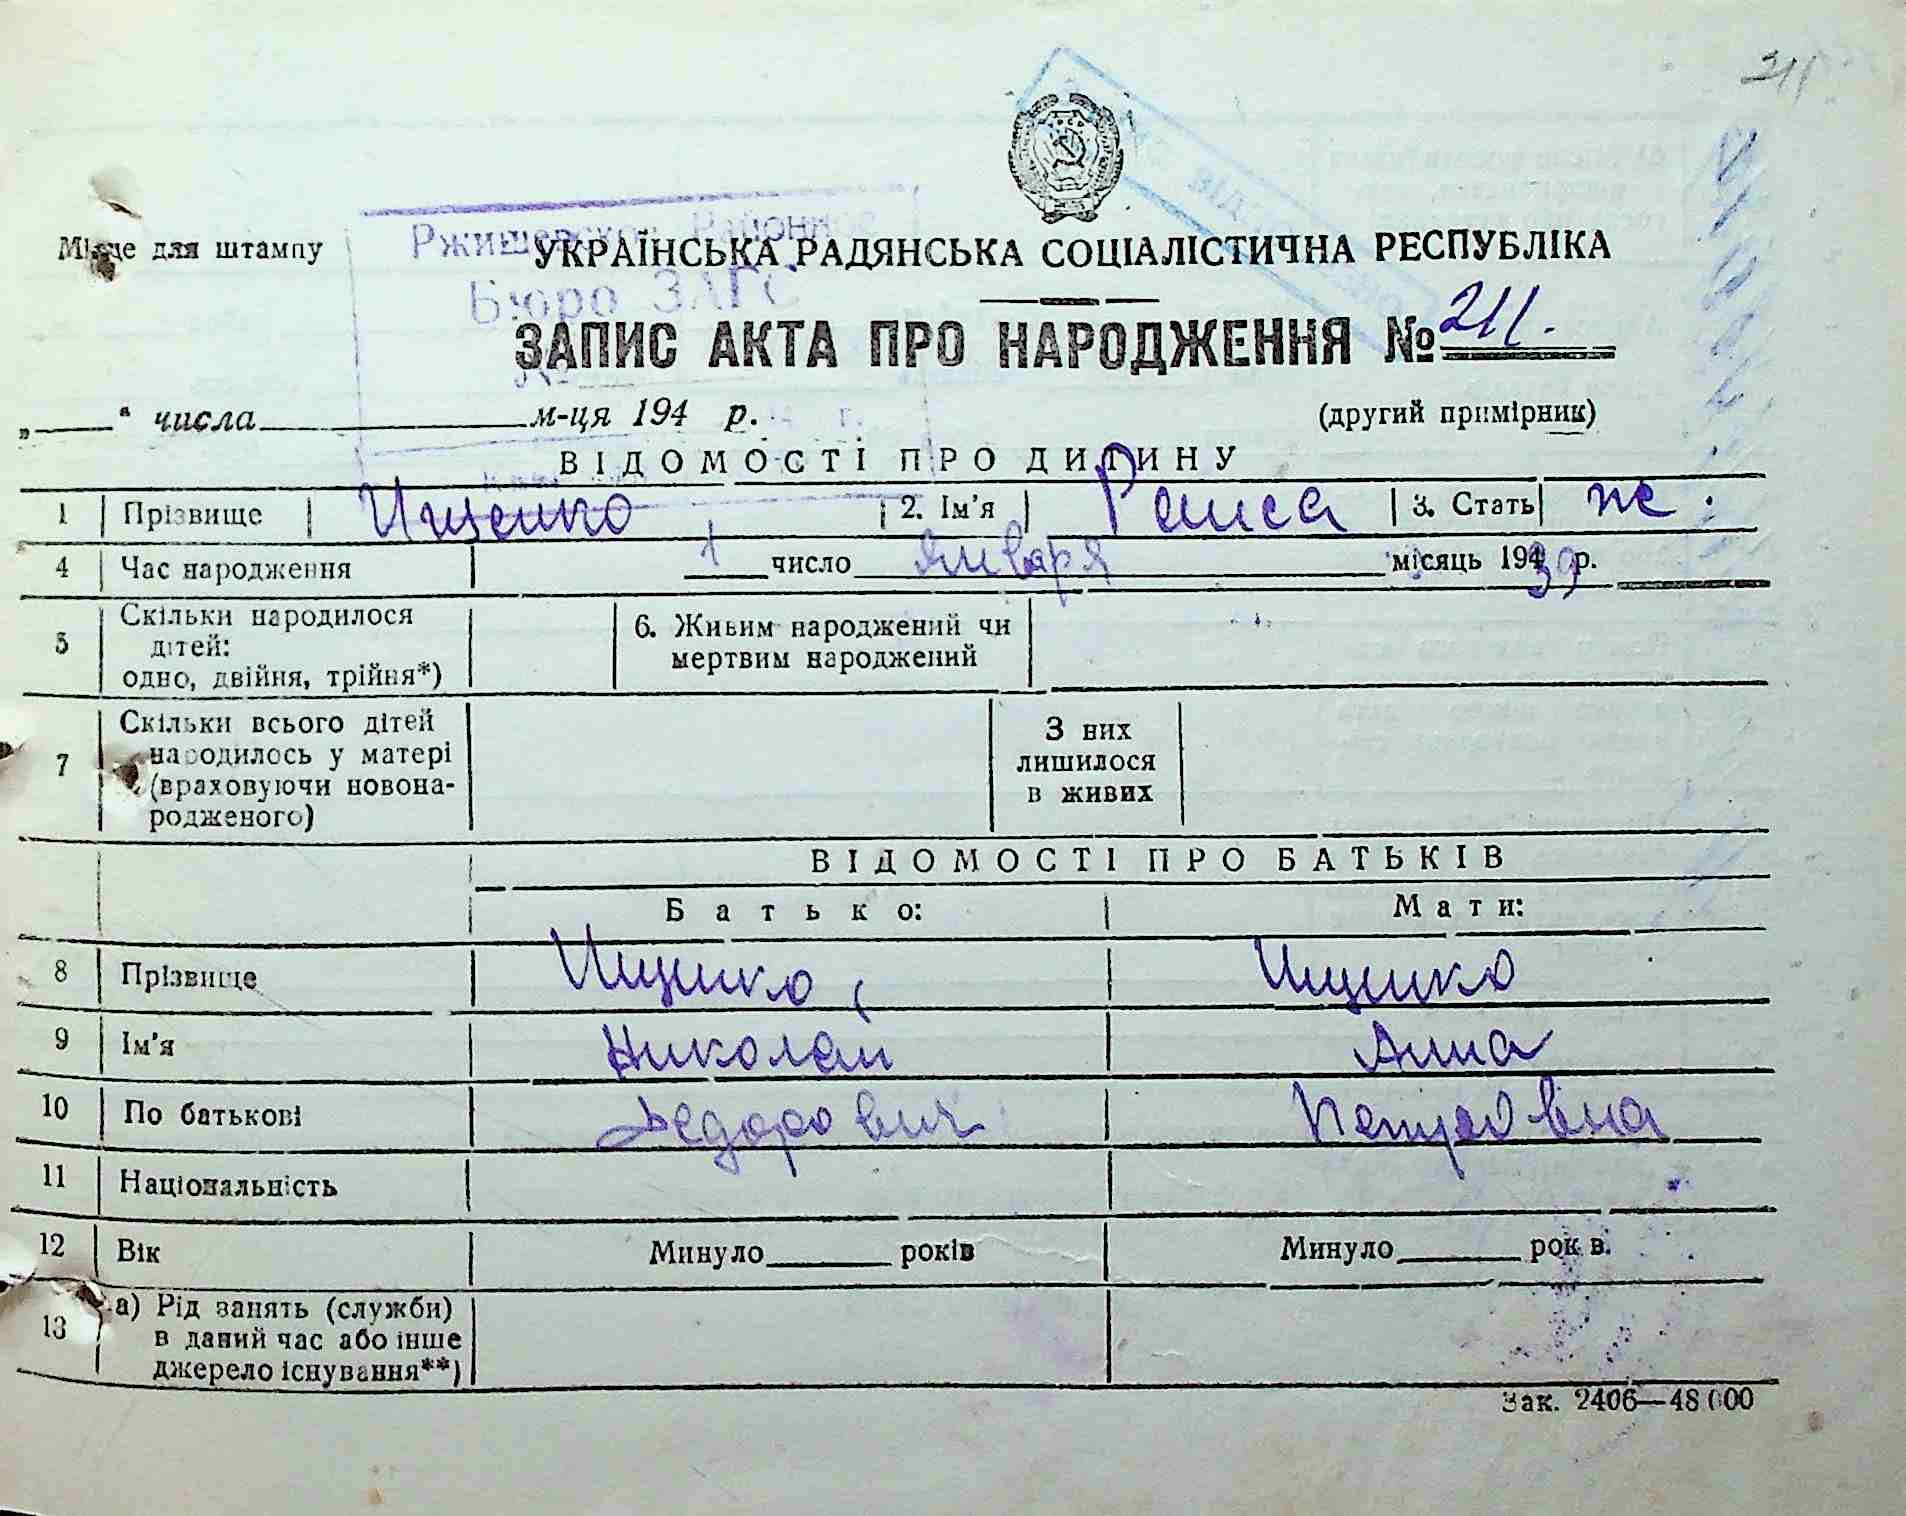 211
Місце для штампу
Ржищевское Районное
Бюро ЗАГС
УКРАЇНСЬКА РАДЯНСЬКА СОЦІАЛІСТИЧНА РЕСПУБЛІКА
ЗАПИС АКТА ПРО НАРОДЖЕННЯ № 211.
„ “ числа м-ця 194 р.
(другий примірник)
ВІДОМОСТІ ПРО ДИТИНУ
1 Прізвище Ищенко 2. Ім'я Раиса 3. Стать ж.
4 Час народження 1 число января місяць 1939 р.
5 Скільки народилося дітей: одно, двійня, трійня*) 6. Живим народжений чи мертвим народжений
7 Скільки всього дітей народилось у матері (враховуючи новонародженого) З них лишилося в живих
ВІДОМОСТІ ПРО БАТЬКІВ
Батько: Мати:
8 Прізвище Ищенко Ищенко
9 Ім'я Николай Анна
10 По батькові Федорович Петровна
11 Національність
12 Вік Минуло років Минуло років.
13 а) Рід занять (служби) в даний час або інше джерело існування**)
Зак. 2406—48000